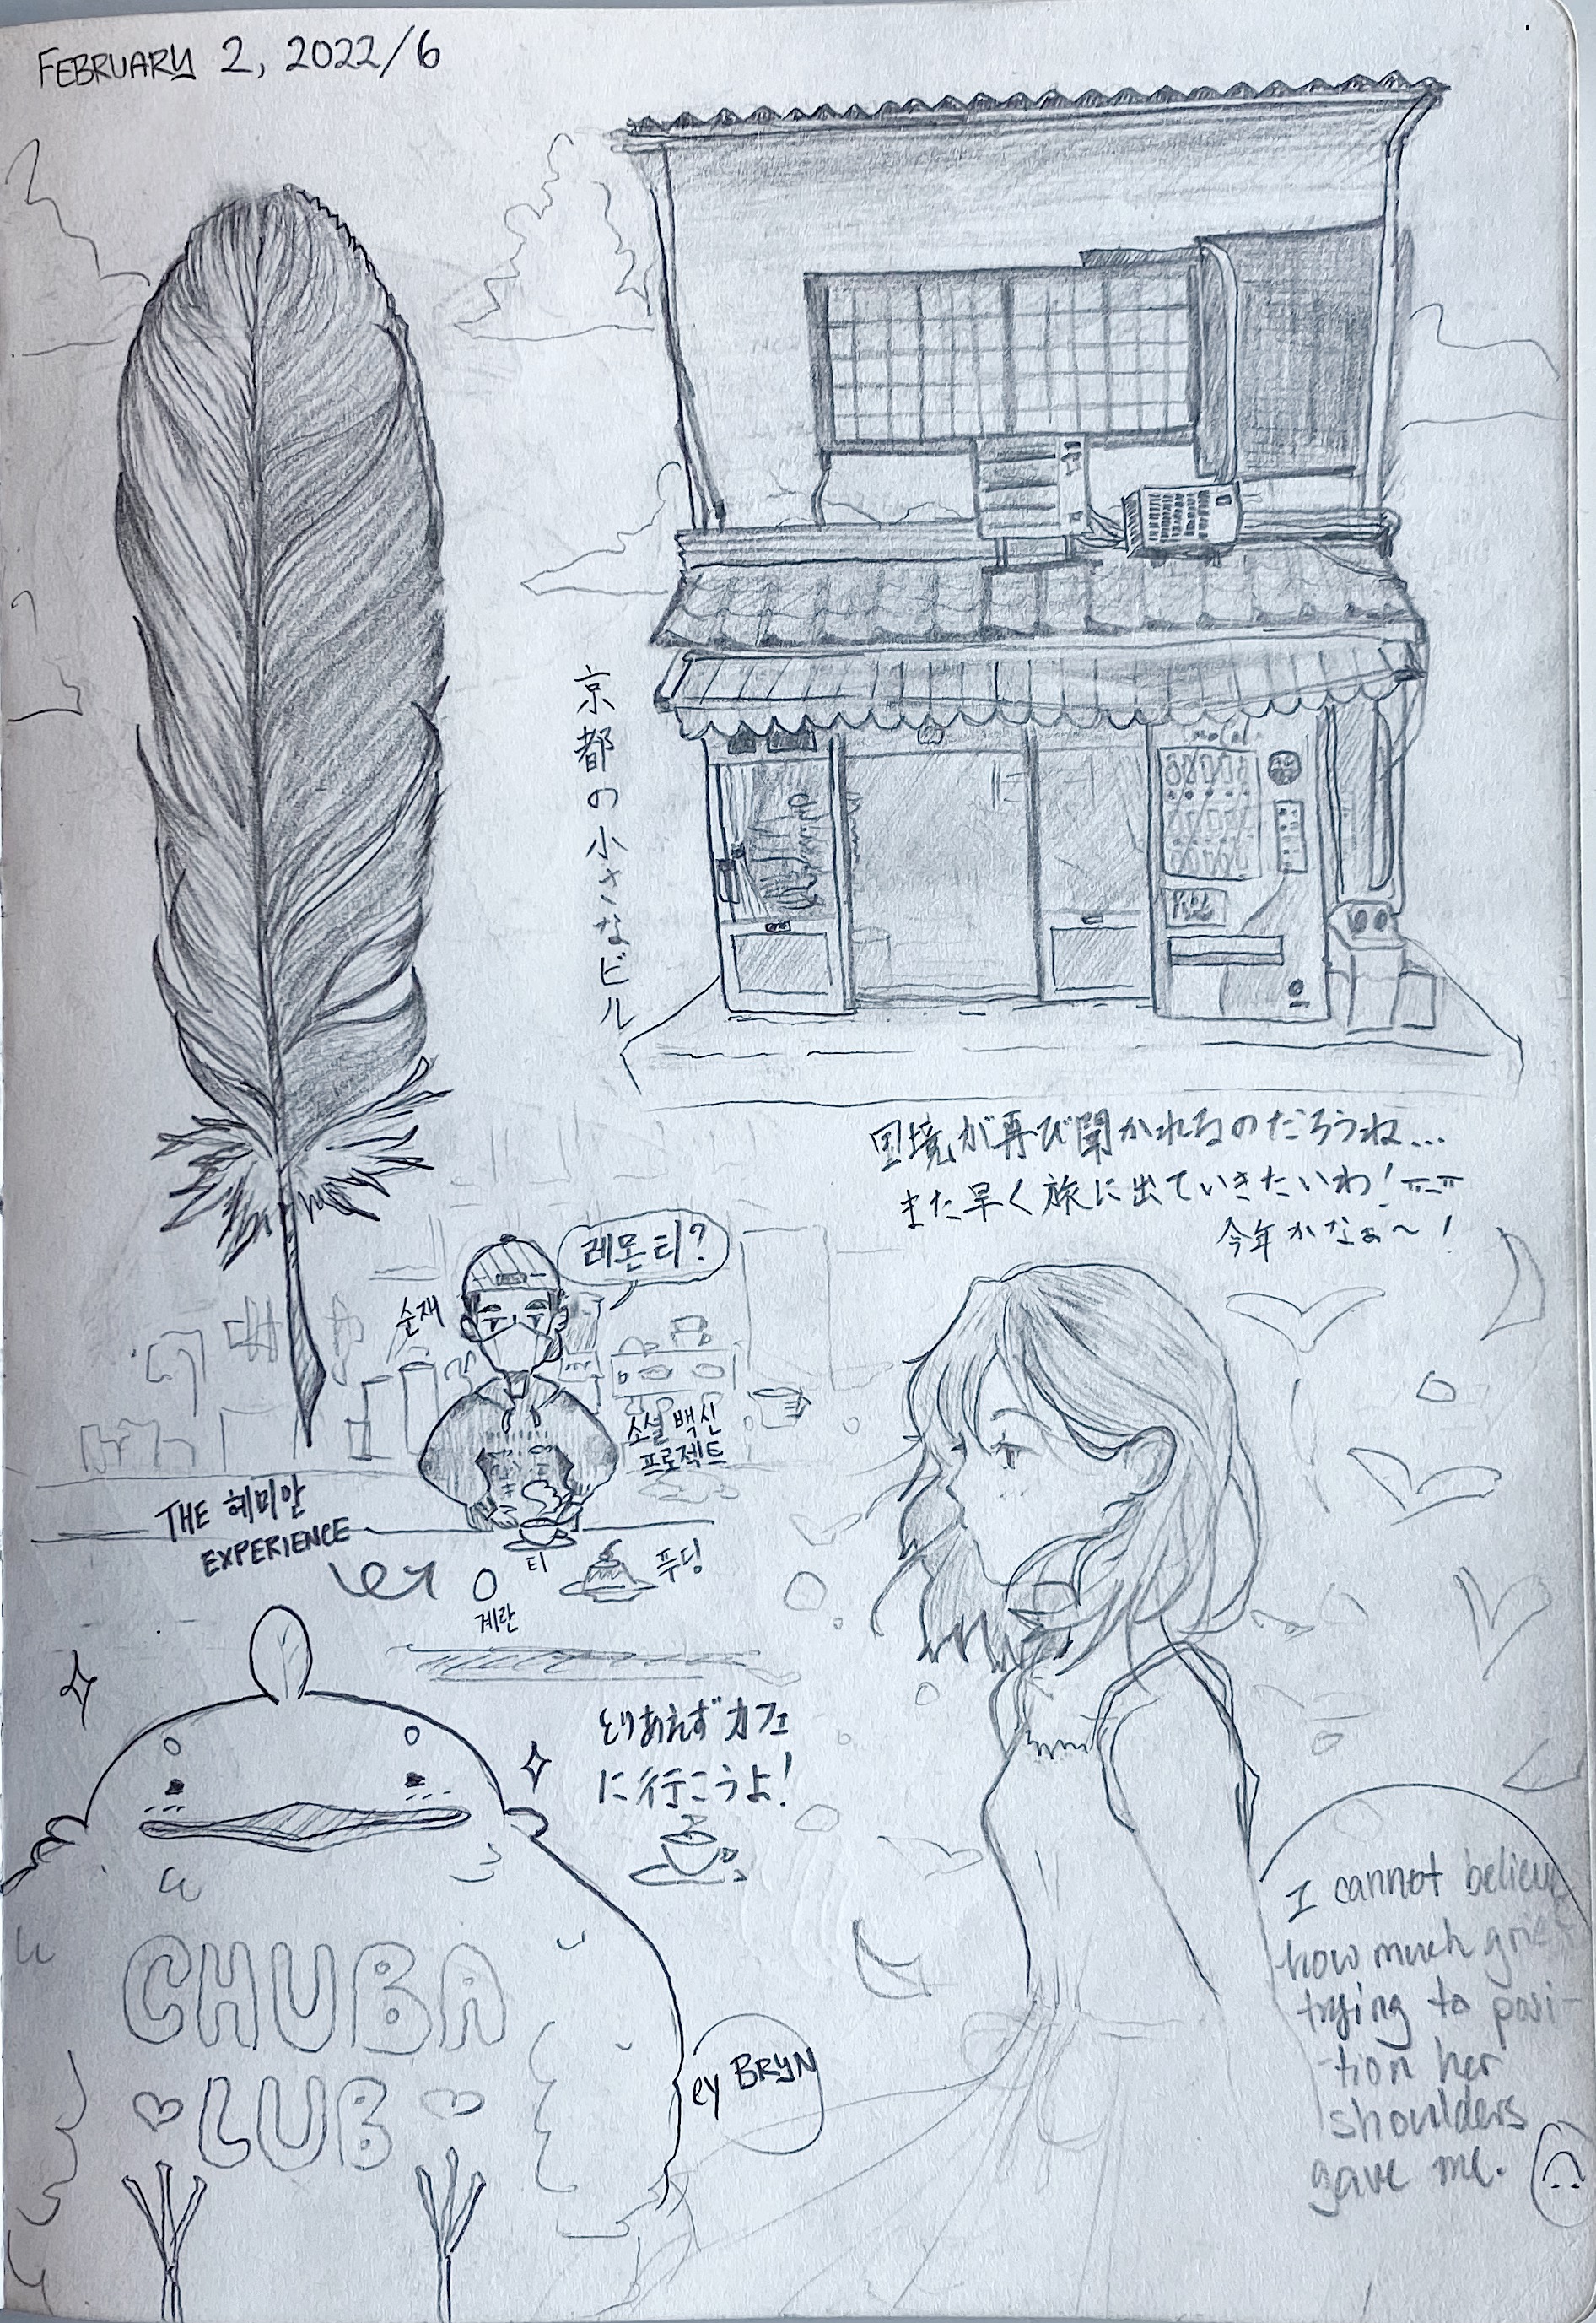 FEBRUARY 2, 2022/6
京都の小さなビル
国境が再び開かれるのだろうね...
また早く旅に出ていきたいわ! ㅠ_ㅠ
今年かなぁ〜!
레몬티?
순재
소셜 백신
프로젝트
THE 헤미안
EXPERIENCE
티
푸딩
계란
とりあえずカフェ
に行こうよ!
CHUBA
LUB
ey BRYN
I cannot believe
how much grief
trying to posi-
tion her
shoulders
gave me.